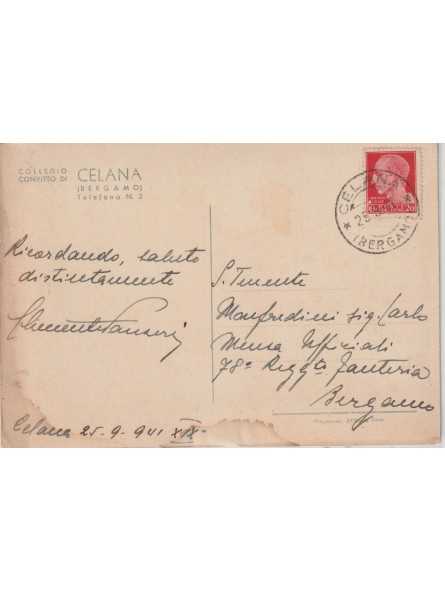 COLLEGIO
CONVITTO DI CELANA
(BERGAMO)
Telefono N. 2
CELANA
25
(BERGAMO)
Ricordando, saluto
distintamente
Celana 25-9-941 XIX°
S. Tenente
Manfredini sig. Carlo
Mensa Ufficiali
78° Regg.to Fanteria
Bergamo